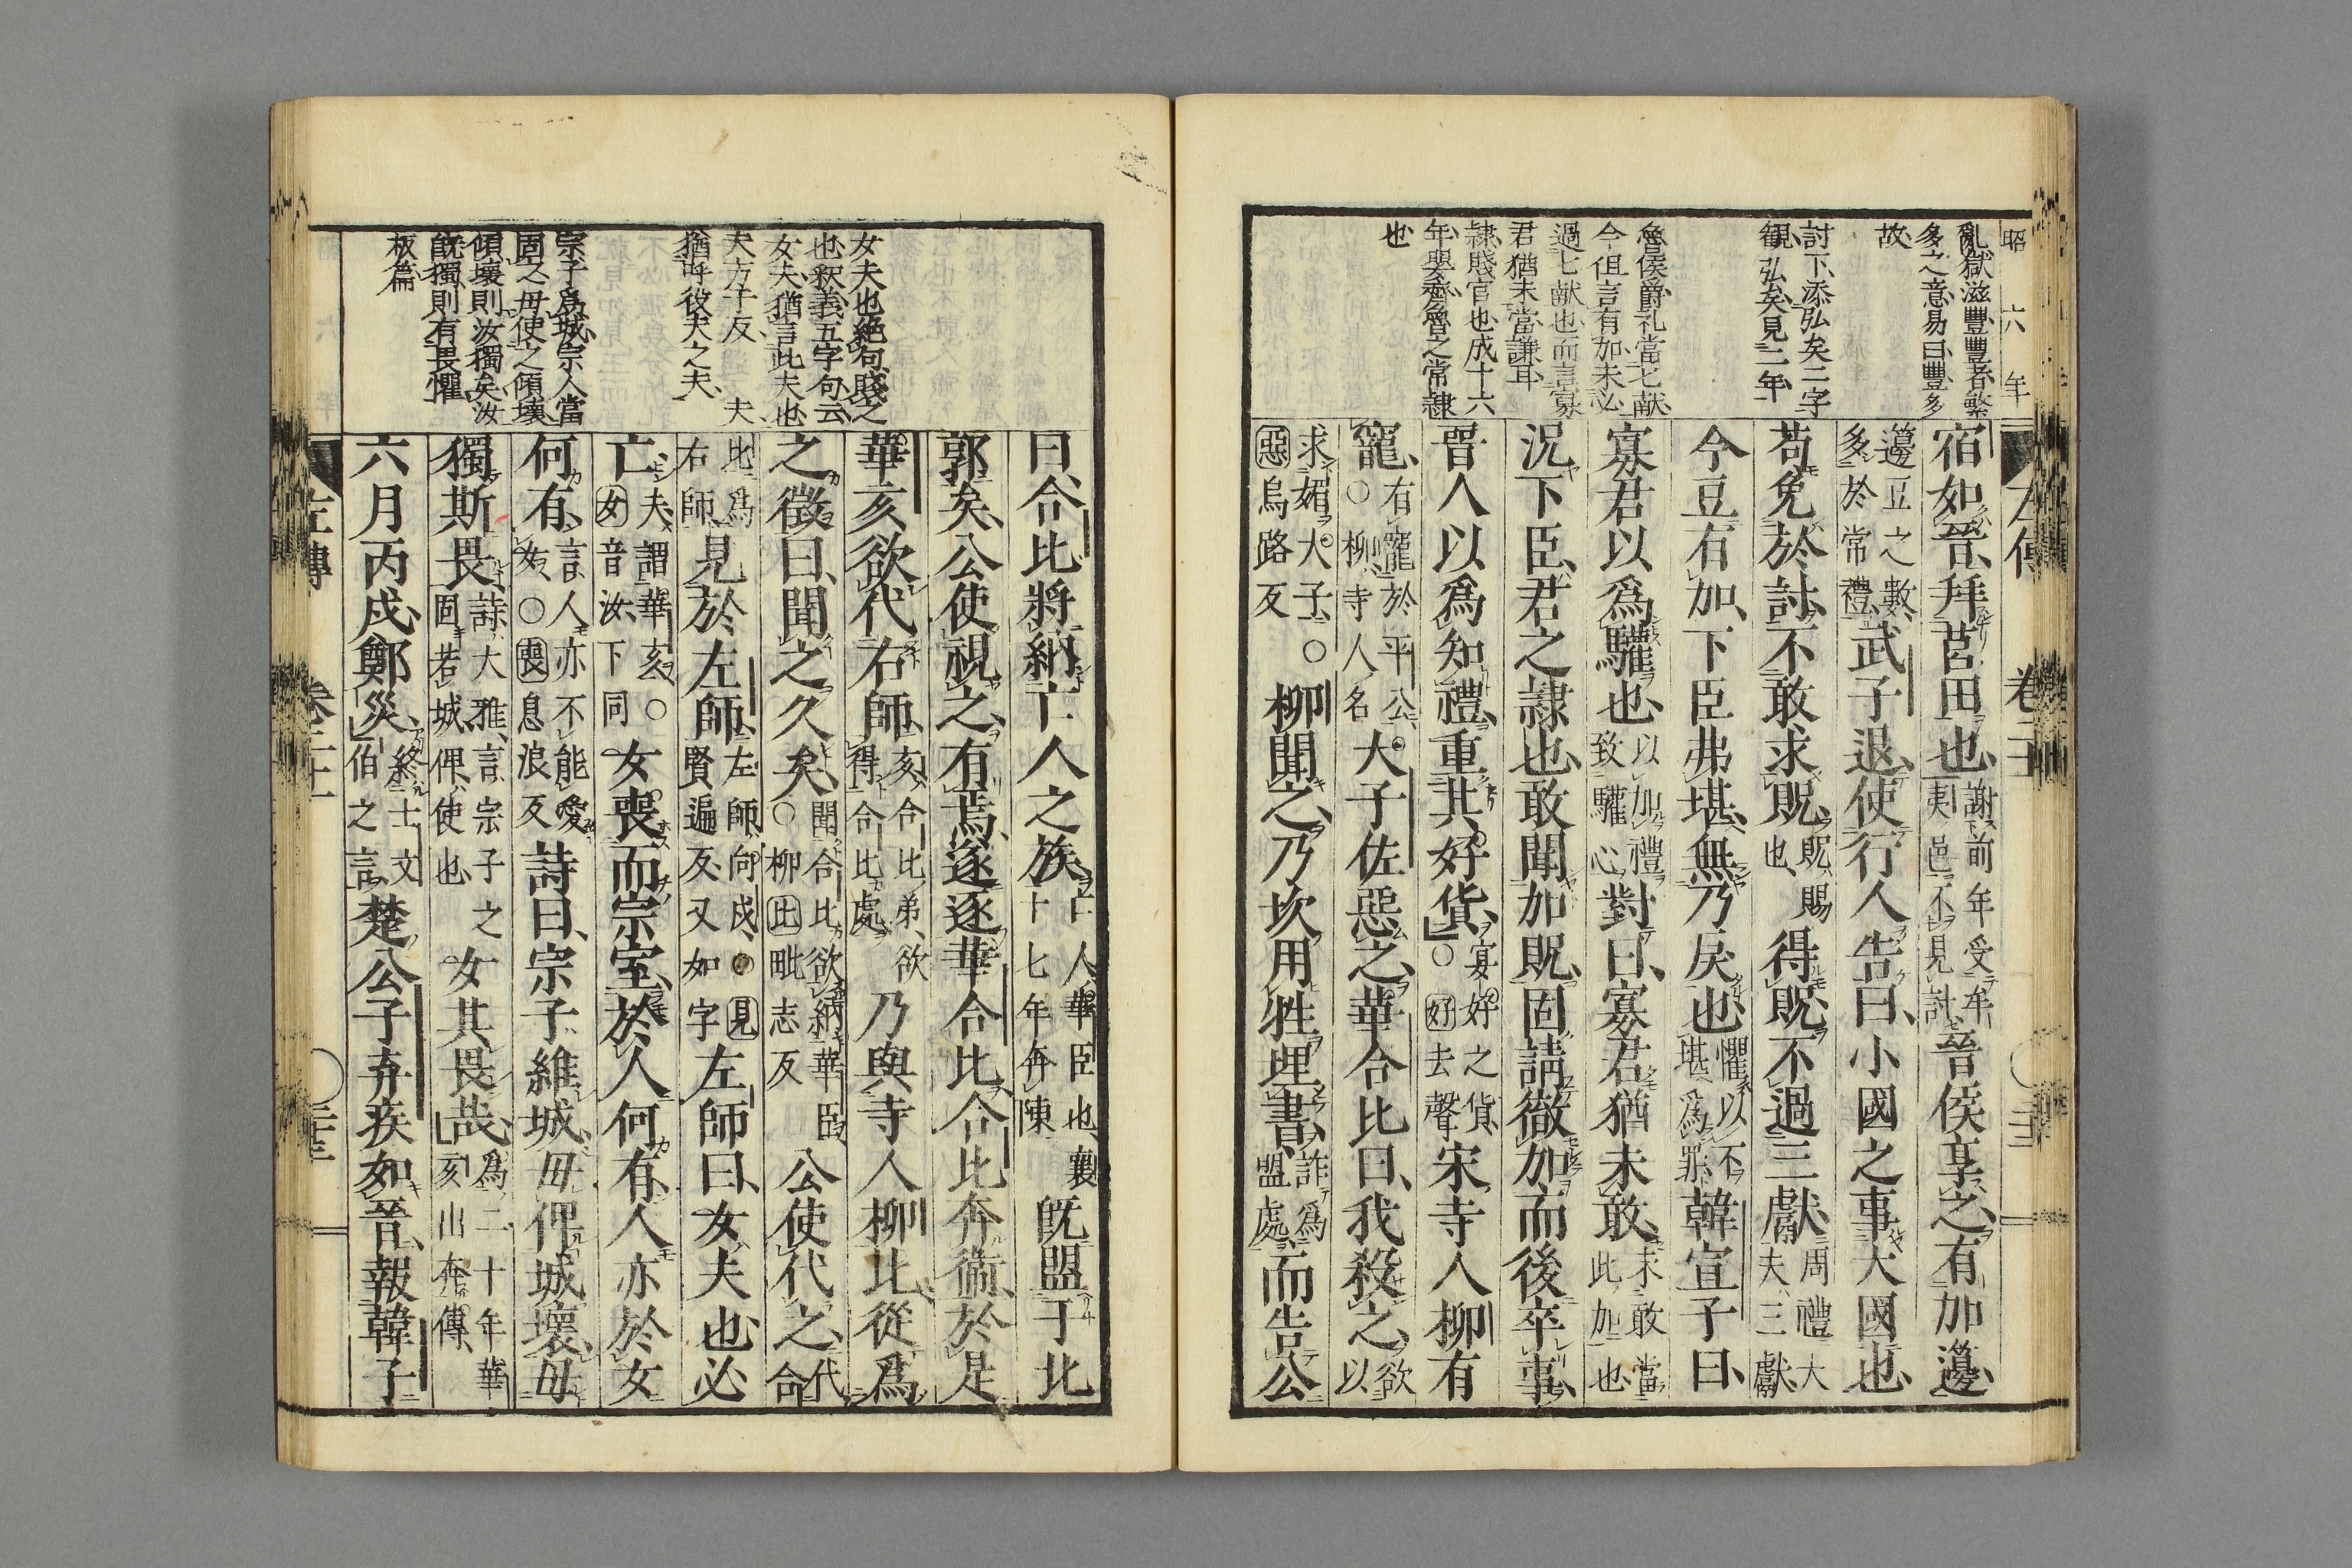 昭 六 年
亂獄滋豐豐者繁
多之意易曰豐多
故
討下添弘矣二字
觀弘矣見二年
魯侯爵礼當七献
今但言有加未必
過七献也而言寡
君猶未當謙耳
隷賤官也成十六
年與齊魯之常隷
也
左傳 卷二十
宿如晉拜莒田也謝前年受牟夷邑不見討晉侯享之有加籩
籩豆之數多於常禮武子退使行人告曰小國之事大國也
苟免於討不敢求貺貺賜也得貺不過三獻周禮大夫三獻
今豆有加下臣弗堪無乃戾也懼以不堪爲罪韓宣子曰
寡君以爲驩也以加禮致驩心對曰寡君猶未敢未敢當此加也
況下臣君之隷也敢聞加貺固請徹加而後卒事
晉人以爲知禮重其好貨宴好之貨○好去聲宋寺人柳有
寵有寵於平公○柳寺人名大子佐惡之華合比曰我殺之欲以
求媚大子○惡烏路反柳聞之乃坎用牲埋書詐爲盟處而告公
女夫也絶句賤之
也釈義五字句云
女夫猶言此夫也
夫方于反 夫
猶呼役夫之夫
宗子爲城宗人當
固之毋使之傾壞
傾壞則汝獨矣汝
旣獨則有畏懼
板篇
曰合比將納亡人之族亡人華臣也襄十七年奔陳旣盟于北
郭矣公使視之有焉遂逐華合比合比奔衞於是
華亥欲代右師亥合比弟欲得合比處乃與寺人柳比從爲
之徵曰聞之久矣聞合比欲納華臣○柳比毗志反公使代之代合
比爲右師見於左師左師向戌○見賢遍反又如字左師曰女夫也必
亡夫謂華亥○女音汝下同女喪而宗室於人何有人亦於女
何有言人亦不能愛女○喪息浪反詩曰宗子維城毋俾城壞毋
獨斯畏詩大雅言宗子之固若城俾使也女其畏哉爲二十年華亥出奔傳
六月丙戌鄭災終士文伯之言楚公子弃疾如晉報韓子
左傳 卷二十